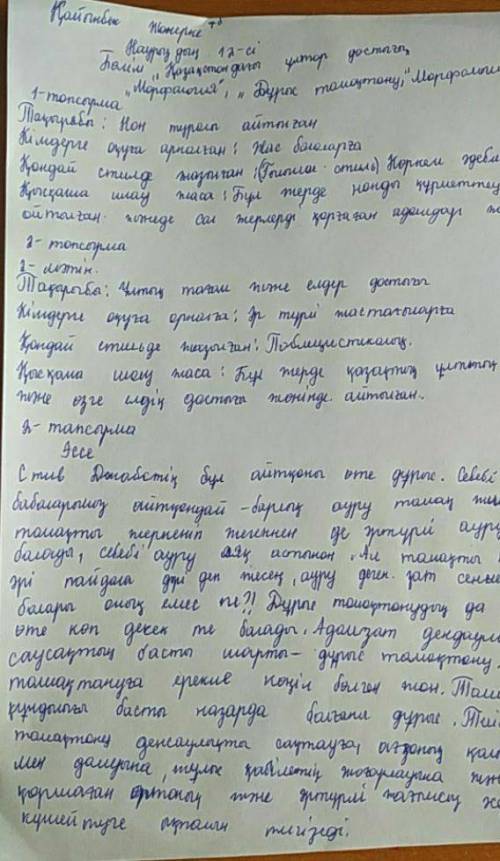 Қайынбек Жанерке 7"б"
Наурыздың 12-сі
Бөлім „Қазақстандағы ұлттар достығы,
„Морфология", „Дұрыс тамақтану", „Морфология
1-топсырма
Тақырыбы: Нон туралы айтылған
Кімдерге оқуға арналған: Жас балаларға
Қандай стилде жазылған: (Ғылыми стиль) Көркем әдеби
Қысқаша шолу жаса: Бұл жерде нонды құрметтеу
айтылған. және де сол жерлерді қорғаған адамдар
2-топсырма
2-мәтін.
Тақырыбы: Ұлттық тағам және елдер достығы
Кімдерге оқуға арналған: Әр түрлі жастағыларға
Қандай стильде жазылған: Публицистикалық.
Қысқаша шолу жаса: Бұл жерде қазақтың ұлттық
және өзге елдің достығы жөнінде айтылған.
2-топсырма
Эссе
Стив Джобстің бұл айтқаны өте дұрыс. Себебі
бабаларымыз айтқандай - барлық ауру тамақ
тамақты жерпенін жегеннен де әртүрлі ауру
болады, себебі ауру аяқ астынан. Ал тамақты
әрі пайдалы дәрі деп жесең, ауру деген зат сенен
болары оның емес пе?! Дұрыс тамақтанудың да
өте көп декек те болады. Адамзат денсаулы
саусақтың басты шарты - дұрыс тамақтану.
тамақтануға ерекше көңіл бөлген жөн. Тама
құндылығы басты назарда болғаны дұрыс. Тиі
тамақтану денсаулықты сақтауға, ағзаның қал
мен дамуына, жұмыс қабілетін жоғарлауына
қоршаған ортаның және әртүрлі жағымсыз
күшейтуге ықпалын тигізеді.